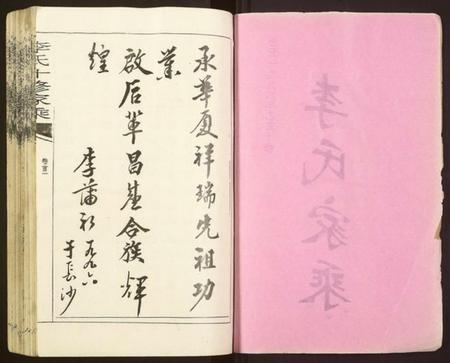 李氏家乘
承華夏祥瑞先祖功
業
啟后輩昌基合族輝
煌
李蒲
一九九六
于长沙
李氏十修家乘
卷首一